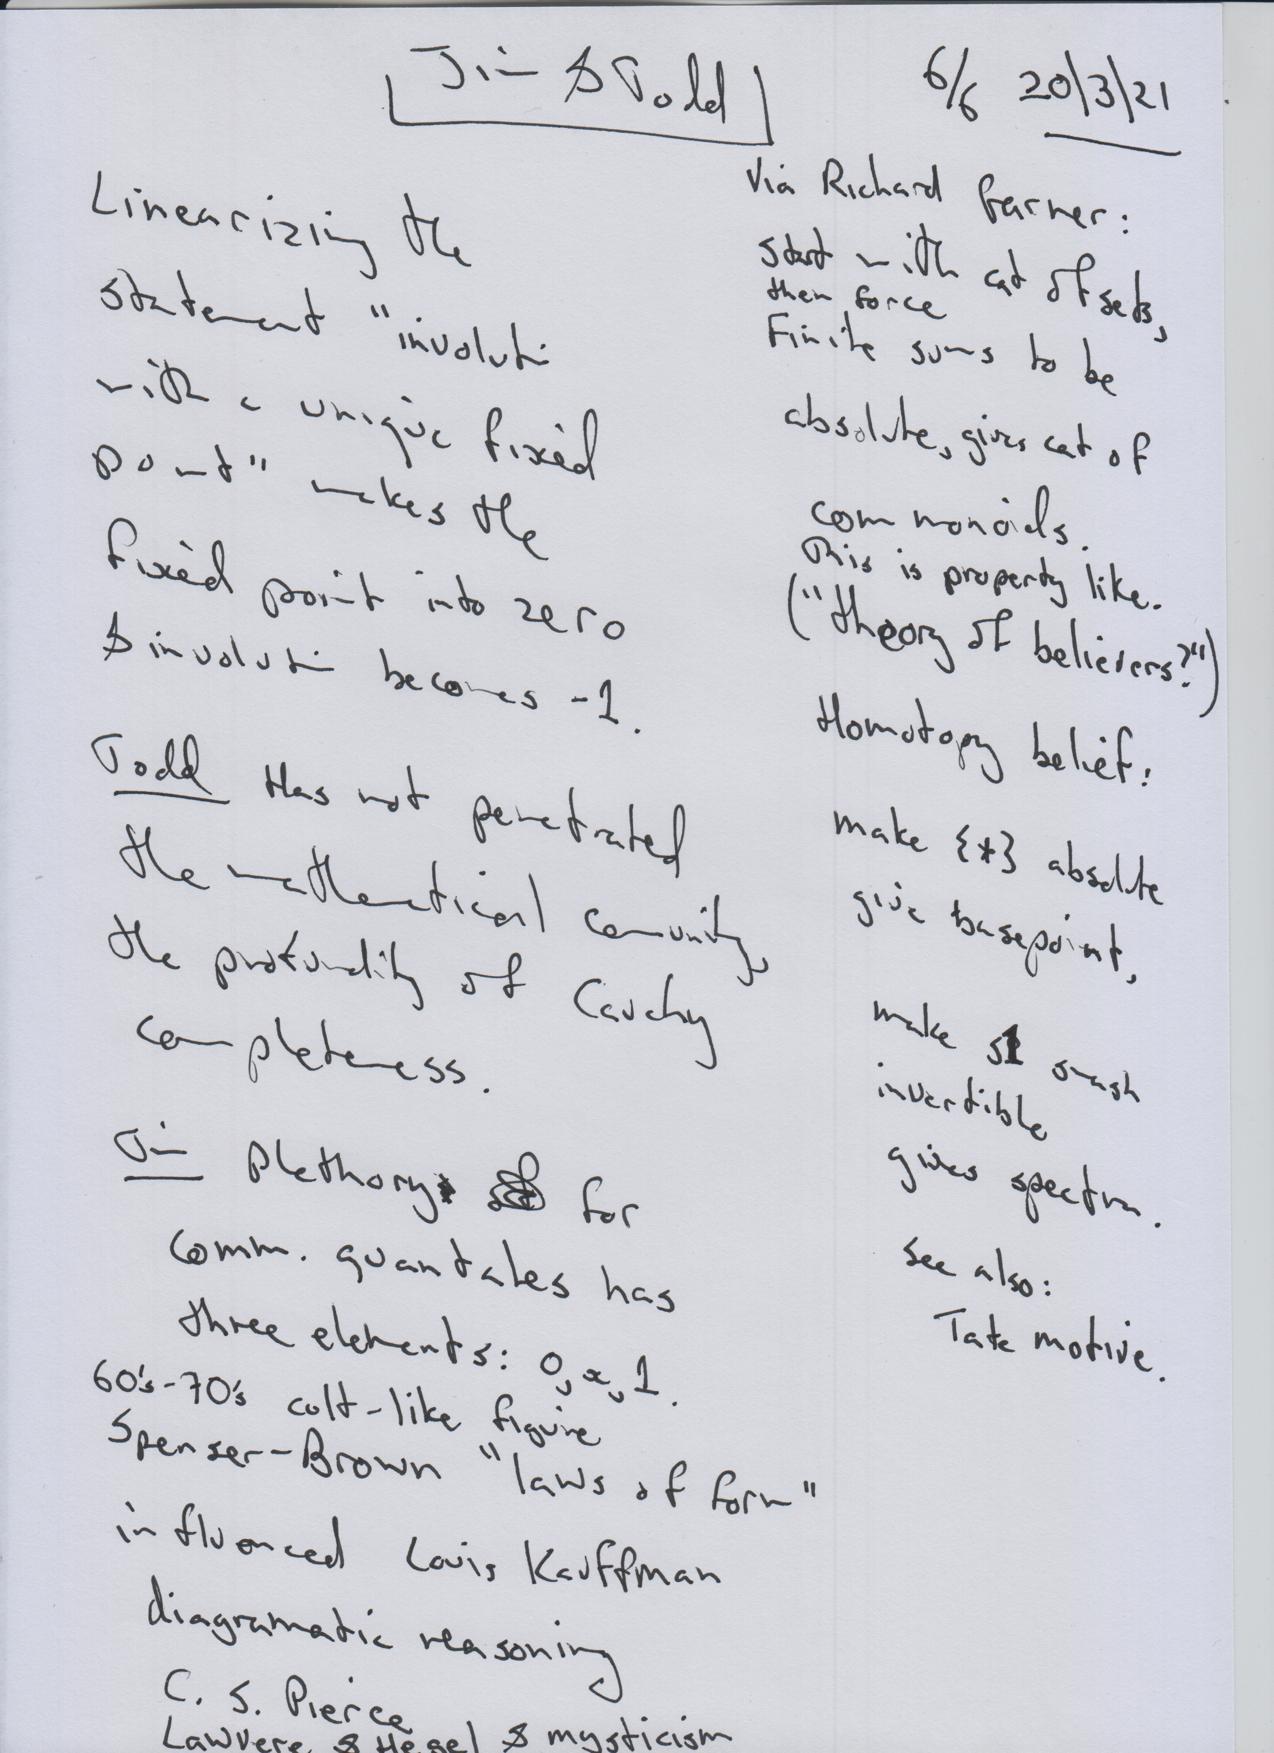 Jim & Todd
6/6 20/3/21
Linearizing the
statement "involution
with a unique fixed
point" makes the
fixed point into zero
& involution becomes -1.
Todd Has not penetrated
the mathematical comunity,
the profundity of Cauchy
completeness.
Jim Plethory for
comm. quantales has
three elements: 0, x, 1.
60's-70's colt-like figure
Spenser-Brown "laws of form"
influenced Louis Kauffman
diagramatic reasoning
C. S. Pierce
Lawvere & Hegel & mysticism
Via Richard Garner:
start with cat of sets,
then force
Finite sums to be
absolute, gives cat of
com monoids.
This is property like.
("theory of believers?")
Homotopy belief:
make {*} absolute
give basepoint,
make S1 smash
invertible
gives spectra.
see also:
Tate motive.